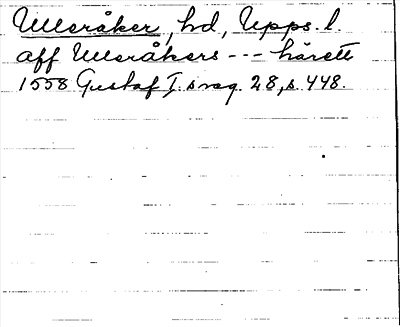 Ulleråker, hd, Upps. l.
aff Ulleråkers --- härett
1558 Gustaf I:s reg. 28, s. 448.